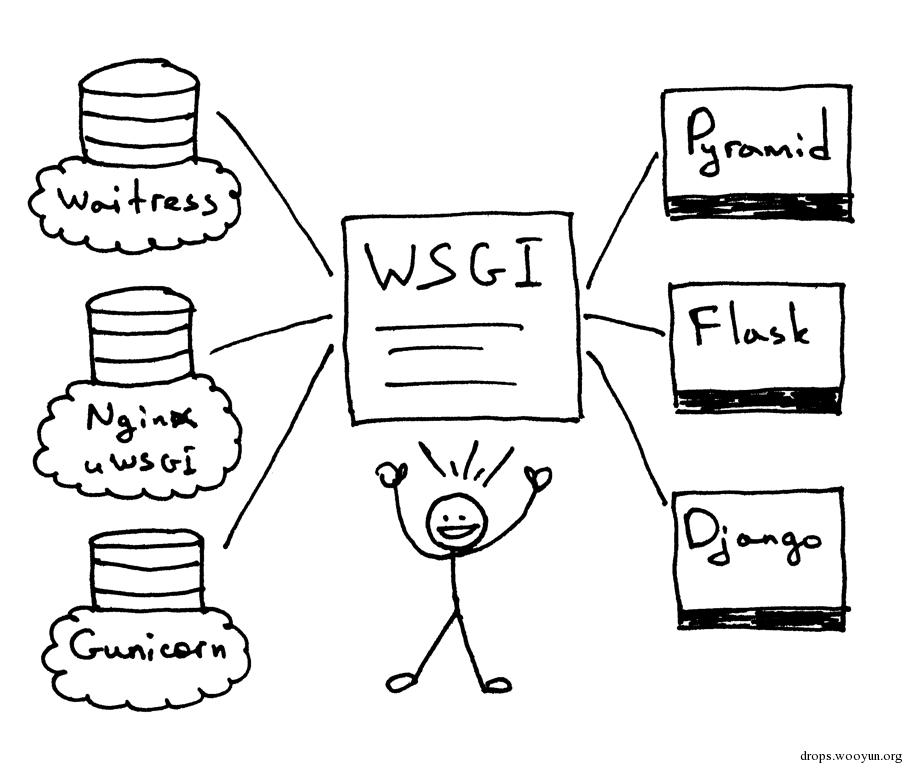 Waitress
Nginx
uWSGI
Gunicorn
WSGI
Pyramid
Flask
Django
drops.wooyun.org